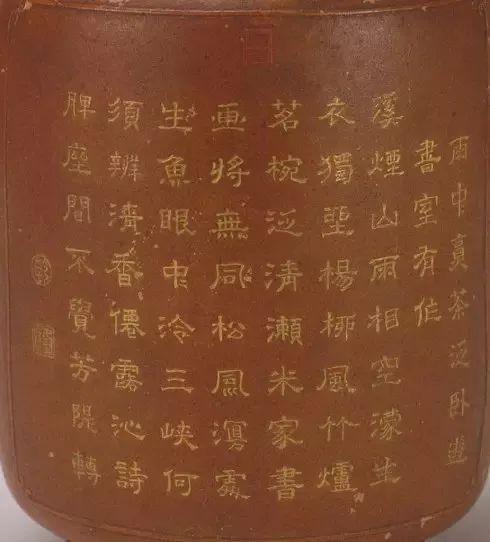 雨中烹茶泛卧遊
書室有作
溪煙山雨相空濛生
衣獨坐楊柳風竹爐
茗椀泛清瀨米家書
畫將無同松風瀉處
生魚眼中泠三峽何
須辨清香僊露沁詩
脾座間不覺芳隄轉